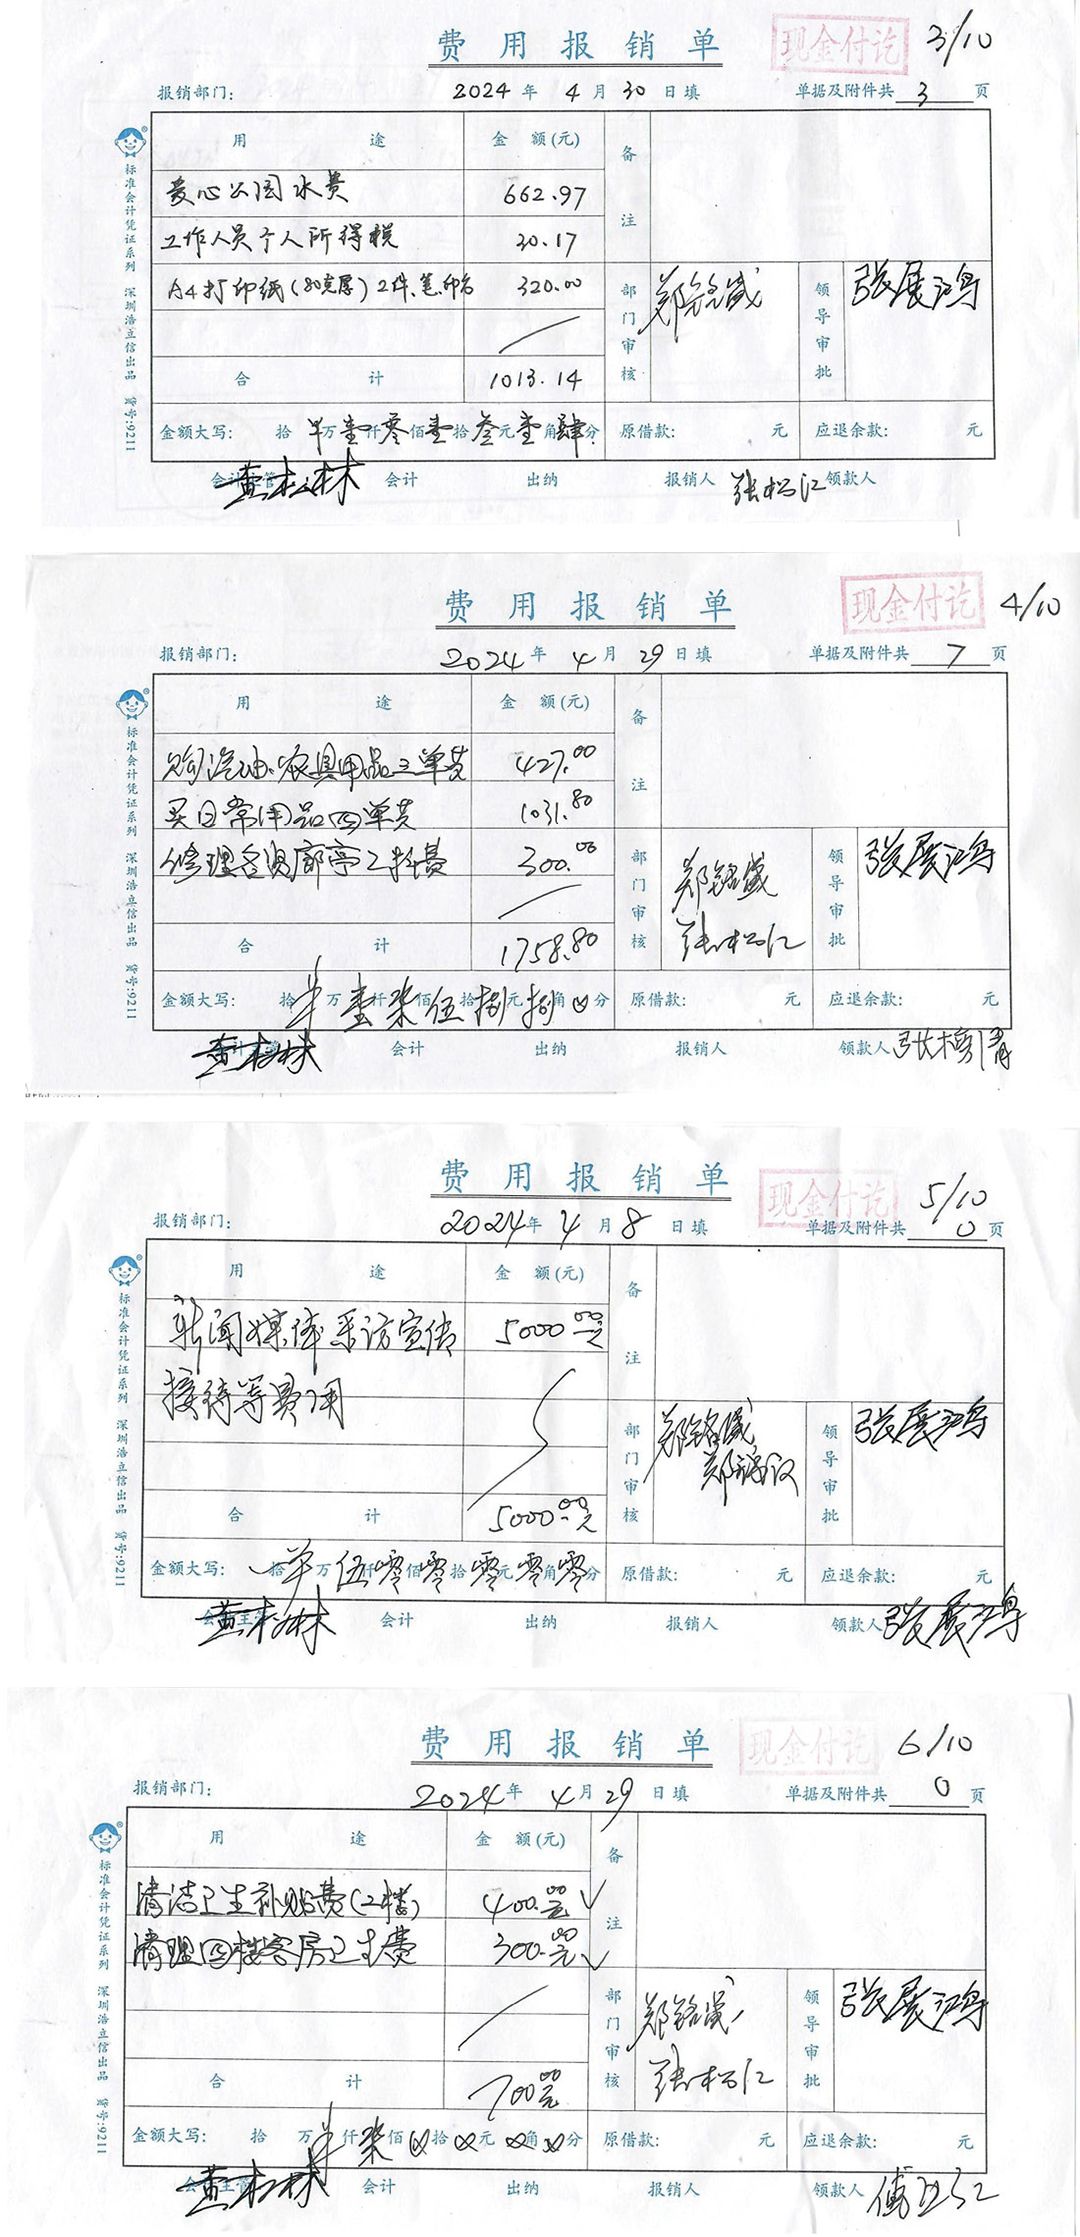 费用报销单
现金付讫
3/10
报销部门:
2024年4月30日填
单据及附件共3页
用途
金额(元)
备注
爱心公园水费
662.97
工作人员个人所得税
30.17
A4打印纸(80克厚)2件、笔、印台
320.00
部门审核
郑铭盛
领导审批
张展鸿
合计
1013.14
金额大写: 拾半万壹仟零佰壹拾叁元壹角肆分
原借款: 元
应退余款: 元
会计主管
黄松林
会计
出纳
报销人
张松江
领款人
标准会计凭证系列 深圳浩立信出品 货号:9211
费用报销单
现金付讫
4/10
报销部门:
2024年4月29日填
单据及附件共7页
用途
金额(元)
备注
购汽油、农具用品三单费
427.00
买日常用品四单费
1031.80
修理长廊亭工料费
300.00
部门审核
郑铭盛
张松江
领导审批
张展鸿
合计
1758.80
金额大写: 拾半万壹仟柒佰伍拾捌元捌角0分
原借款: 元
应退余款: 元
黄松林
会计
出纳
报销人
领款人
标准会计凭证系列 深圳浩立信出品 货号:9211
费用报销单
现金付讫
5/10
报销部门:
2024年4月8日填
单据及附件共0页
用途
金额(元)
备注
新闻媒体采访宣传
5000.00元
接待等费用
部门审核
郑铭盛
领导审批
张展鸿
合计
5000.00元
金额大写: 拾半万伍仟零佰零拾零元零角零分
原借款: 元
应退余款: 元
会计主管
黄松林
会计
出纳
报销人
领款人
张展鸿
标准会计凭证系列 深圳浩立信出品 货号:9211
费用报销单
现金付讫
6/10
报销部门:
2024年4月29日填
单据及附件共0页
用途
金额(元)
备注
清洁卫生补贴费(二楼)
400.00元
清理四楼客房卫生费
300.00元
部门审核
郑铭盛
张松江
领导审批
张展鸿
合计
700.00元
金额大写: 拾万半仟柒佰0拾0元0角0分
原借款: 元
应退余款: 元
会计主管
黄松林
会计
出纳
报销人
领款人
标准会计凭证系列 深圳浩立信出品 货号:9211